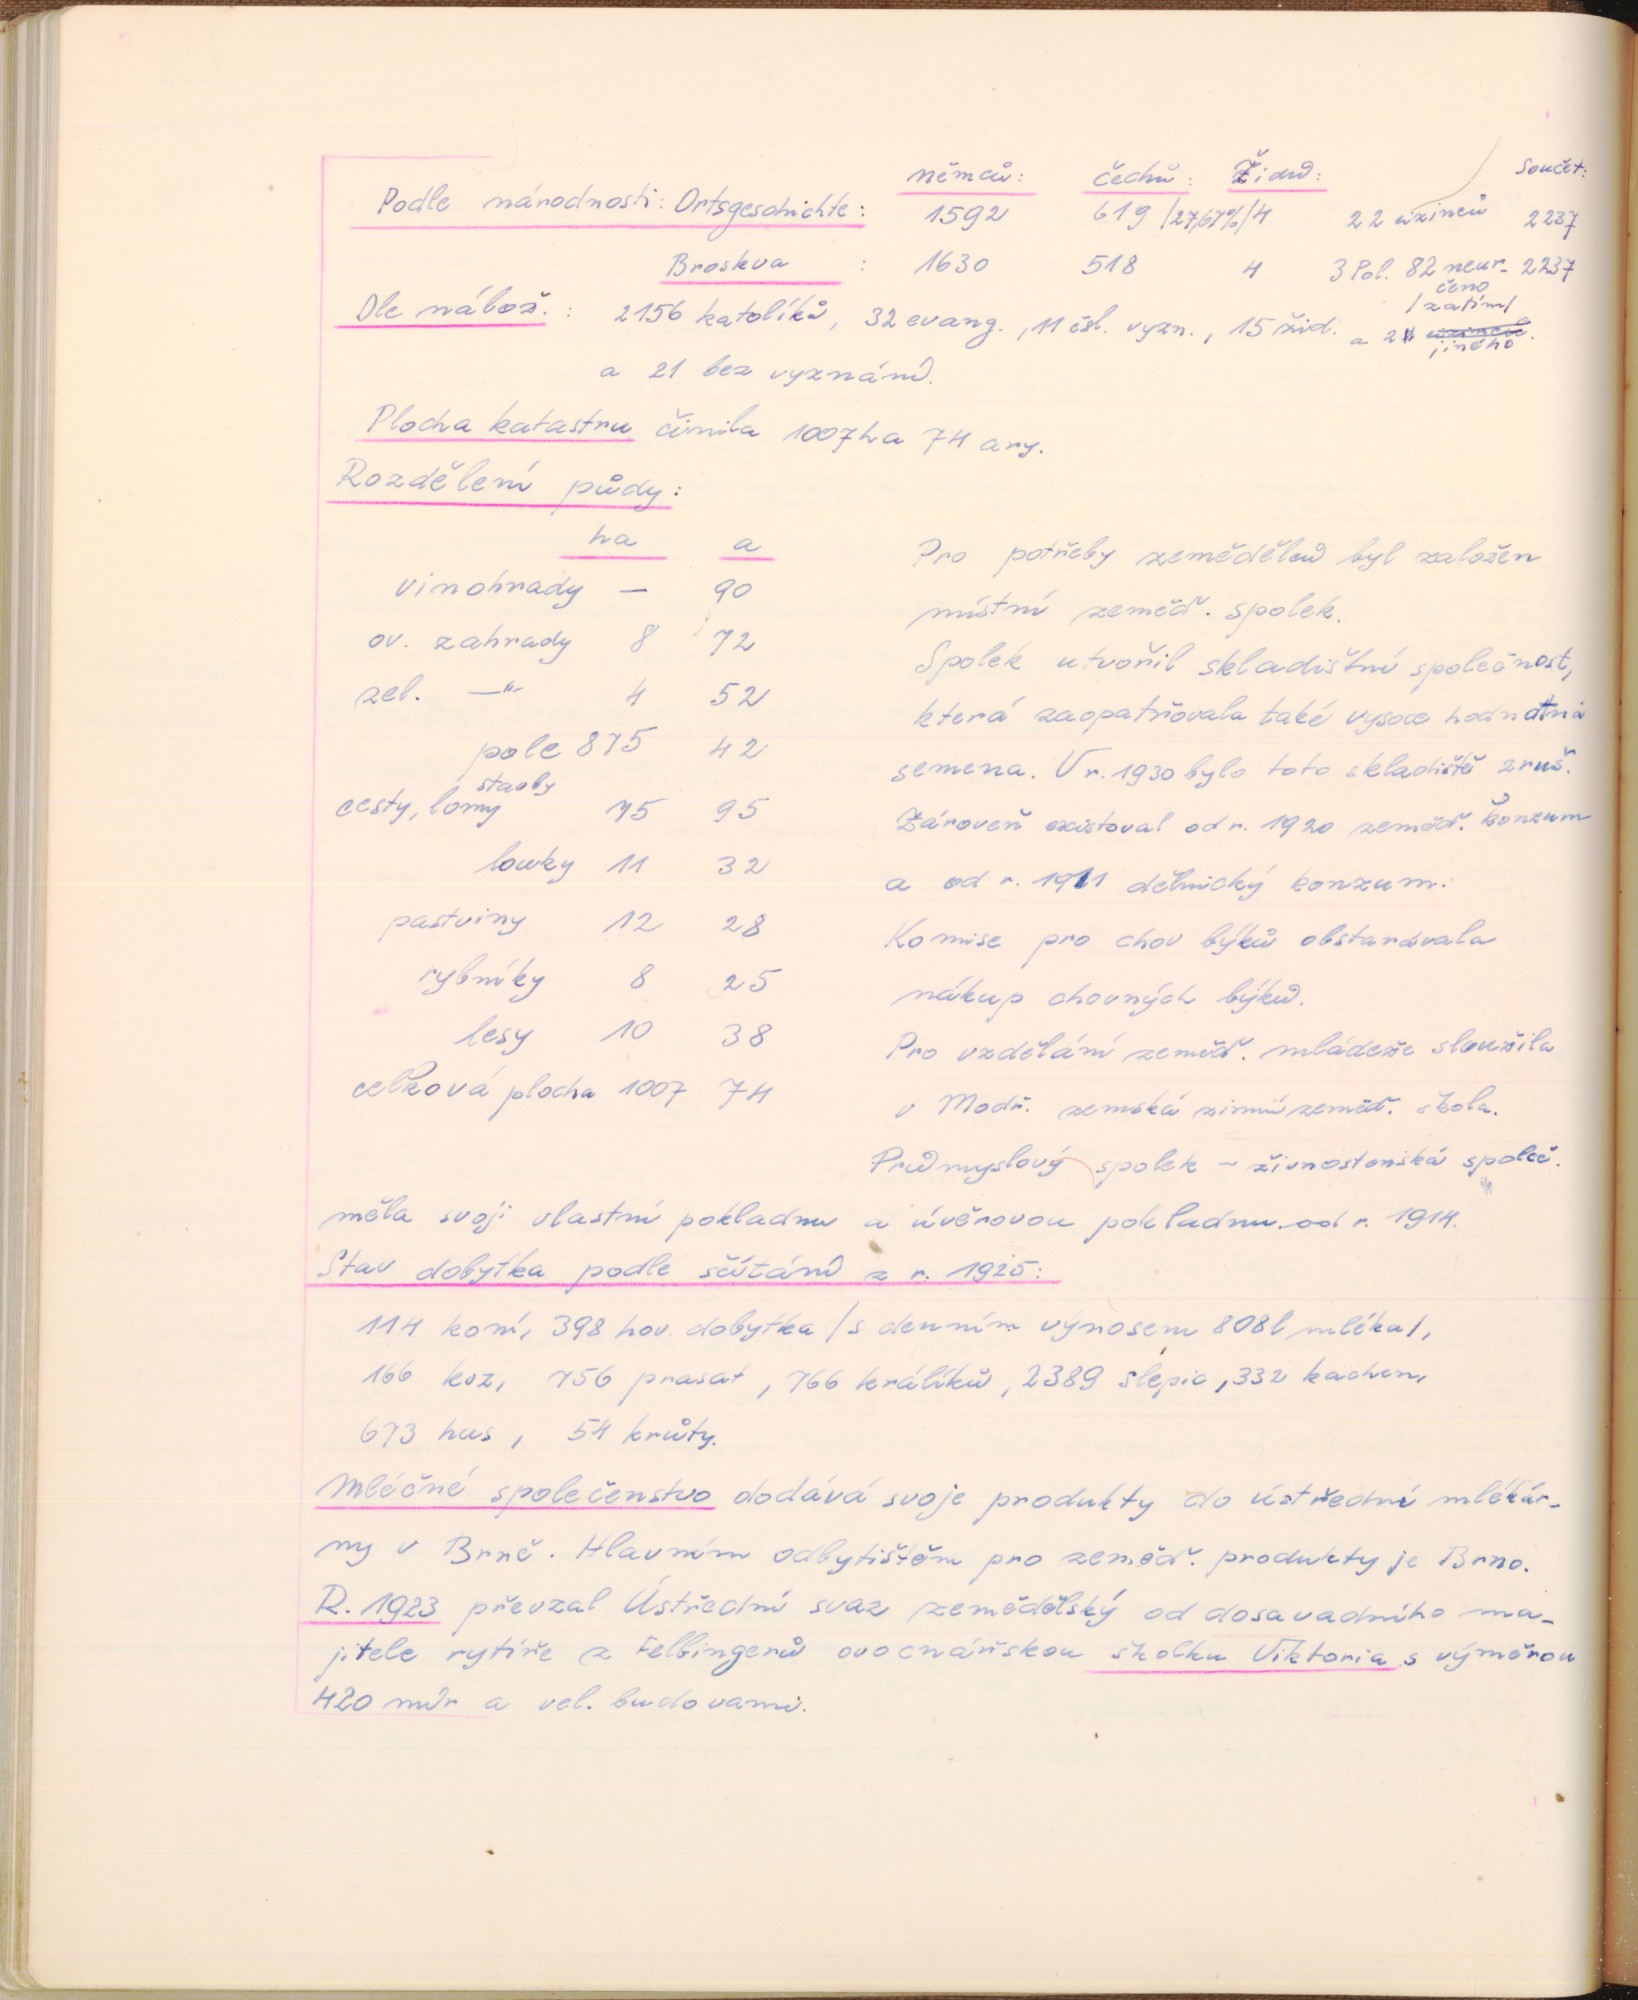 němců: čechů: Židů: Součet:
Podle národnosti: Ortsgeschichte: 1592 619 /27,67%/ 4 22 cizinců 2237
Broskva : 1630 518 4 3 Pol. 82 neur- 2237
čeno
/zatím/
Dle nábož.: 2156 katolíků, 32 evang., 11 čsl. vyzn., 15 žid. a 2 jiného.
a 21 bez vyznání.
Plocha katastru činila 1007 ha 74 ary.
Rozdělení půdy:
ha a
vinohrady — 90
ov. zahrady 8 72
zel. —"— 4 52
pole 875 42
stavby
cesty, lomy 75 95
louky 11 32
pastviny 12 28
rybníky 8 25
lesy 10 38
celková plocha 1007 74
Pro potřeby zemědělců byl založen
místní zeměď. spolek.
Spolek utvořil skladištní společnost,
která zaopatřovala také vysoce hodnotná
semena. V r. 1930 bylo toto skladiště zruš.
Zároveň existoval od r. 1920 zeměď. konzum
a od r. 1911 dělnický konzum.
Komise pro chov býků obstarávala
nákup chovných býků.
Pro vzdělání zeměď. mládeže sloužila
v Modř. zemská zimní zeměď. škola.
Průmyslový spolek - živnostenská společ.
měla svoji vlastní pokladnu a úvěrovou pokladnu od r. 1914.
Stav dobytka podle sčítání z r. 1925:
114 koní, 398 hov. dobytka /s denním výnosem 808 l mléka/,
166 koz, 756 prasat, 766 králíků, 2389 slepic, 332 kachen,
673 hus, 54 krůty.
Mléčné společenstvo dodává svoje produkty do ústřední mlékár-
ny v Brně. Hlavním odbytištěm pro zeměď. produkty je Brno.
R. 1923 převzal Ústřední svaz zemědělský od dosavadního ma-
jitele rytíře z Felbingerů ovocnářskou školku Viktoria s výměrou
420 mír a vel. budovami.